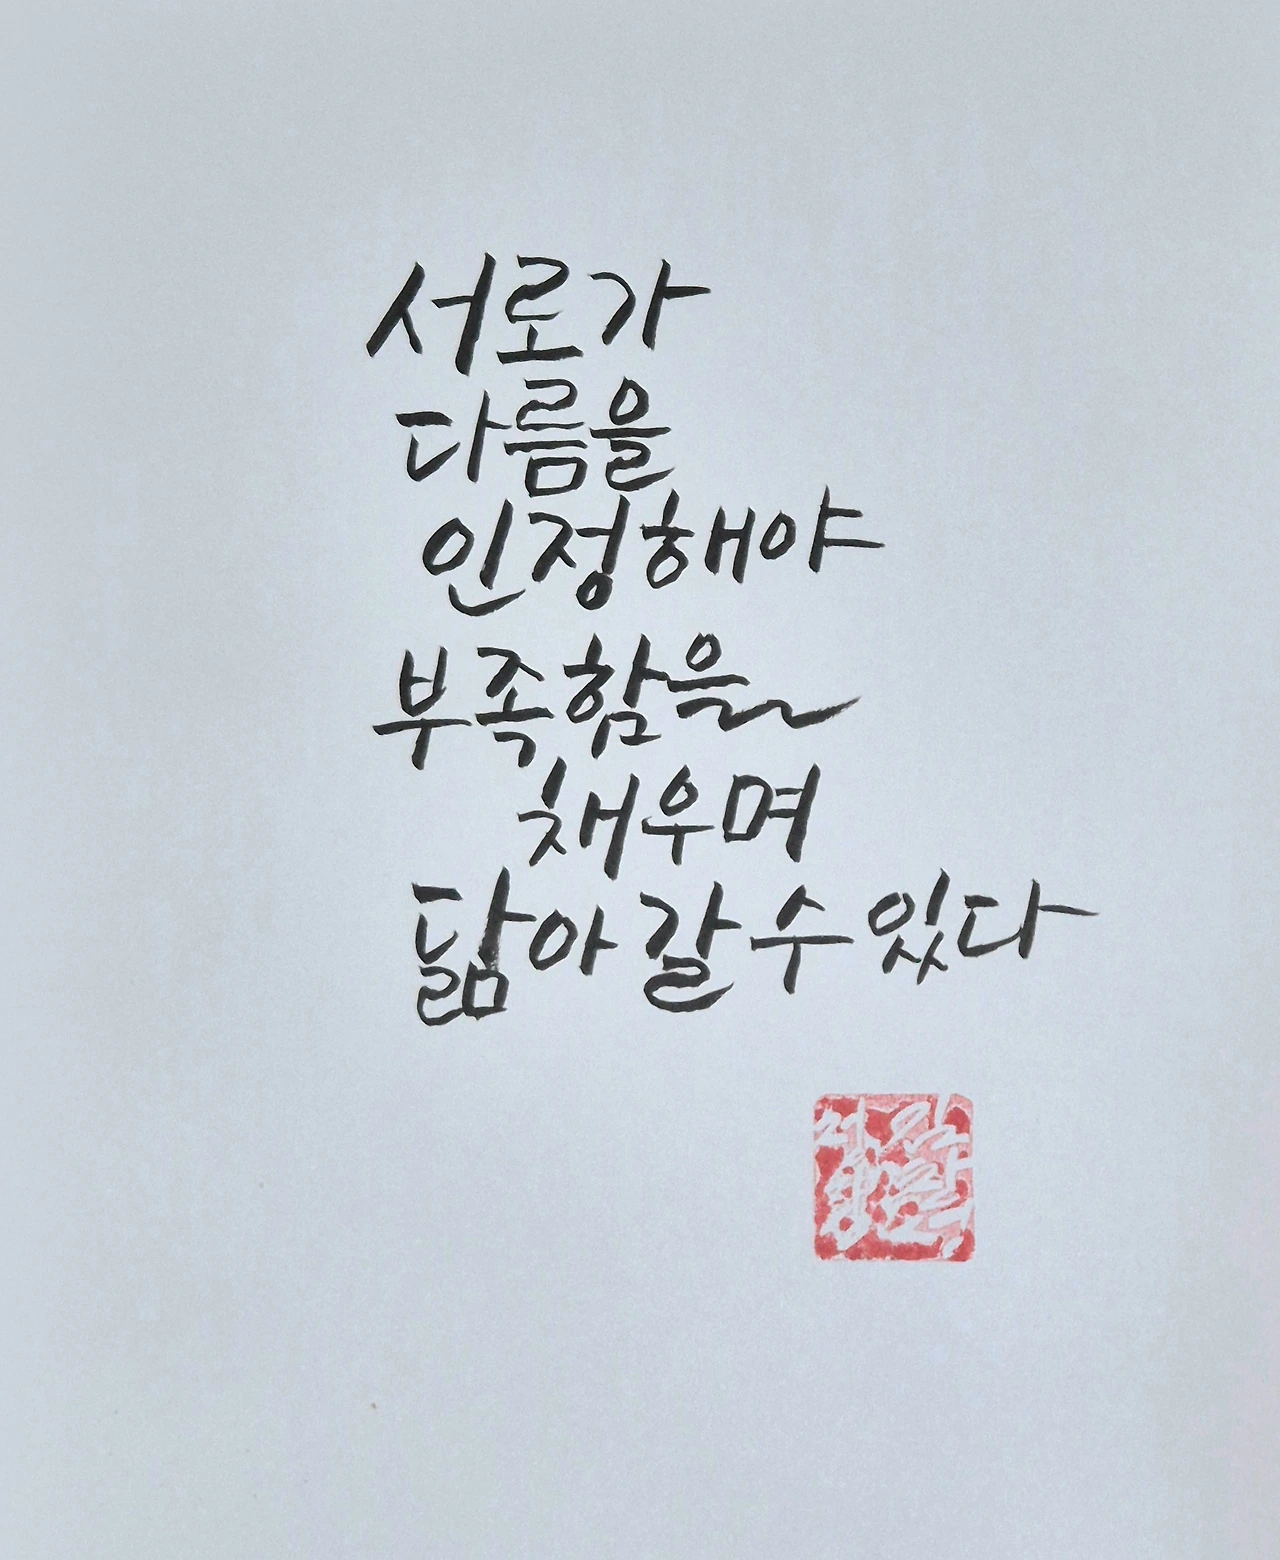 서로가
다름을
인정해야
부족함을
채우며
닮아갈 수 있다